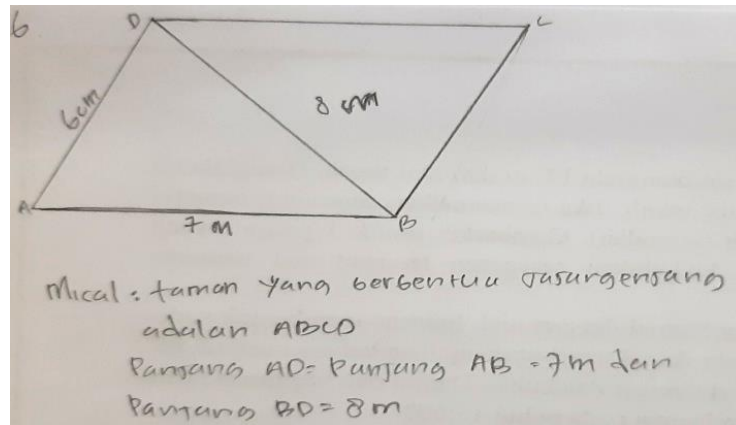 6
D
C
6cm
8 cm
A
7 m
B
Mical : taman yang berbentuk Jajargenjang
adalah ABCD
Panjang AD = Panjang AB = 7m dan
Panjang BD = 8m